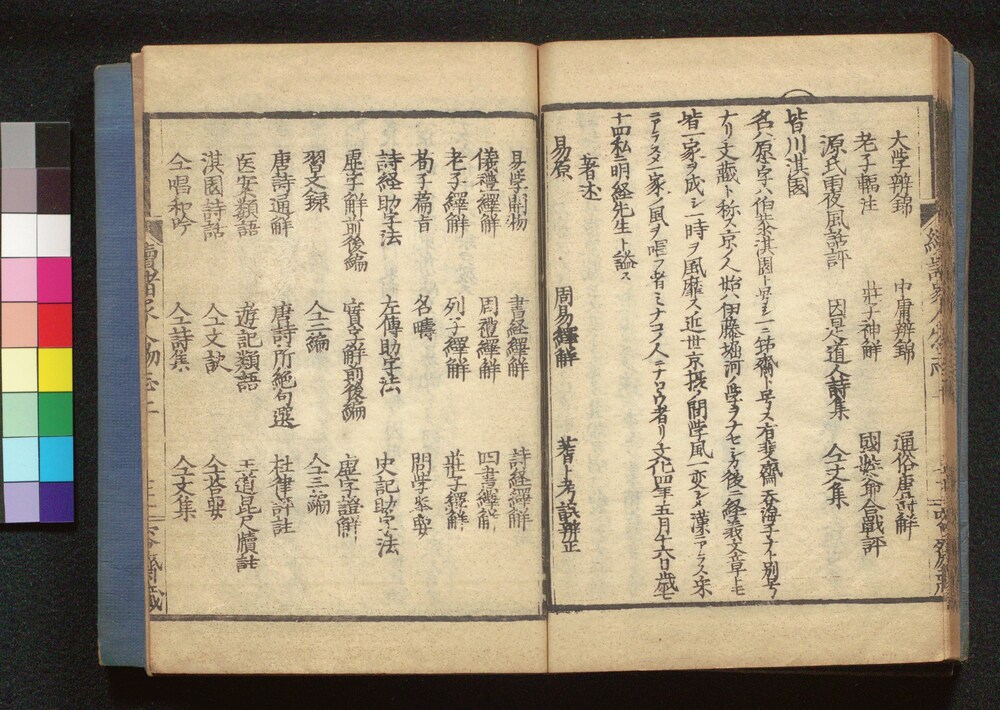 大学辨錦 中庸辨錦 通俗唐詩解
老子輻注 莊子神解 國姓爺合戰評
源氏雨夜風話評 因是道人詩集 仝文集
皆川淇園
名ハ愿字ハ伯恭淇園ト号シ一ニ筇齋ト号ス有斐齋呑海子ナト別号
ナリ文藏ト称ス京ノ人始ハ伊藤堀河ノ学ヲナセシカ後ニ経義文章トモ
皆一家ヲ成シ一時ヲ風靡ス近世京摂ノ間学風一変シ漢ニアラス宋
ニアラス一家ノ風ヲ唱フ者ミナコノ人ニナロウ者リ文化四年五月十六日歳七
十四私ニ明経先生ト謚ス
著述
易原 周易繹解 蓍卜考誤辨正
易学開物 書経繹解 詩経繹解
儀禮繹解 周禮繹解 四書繹解
老子繹解 列子繹解 莊子繹解
荀子藁旨 名疇 問学挙要
詩経助字法 左傳助字法 史記助字法
虚字解前後編 實字解前後編 虚字證解
習文録 仝二編 仝三編
唐詩通解 唐詩所絶句選 杜律評註
医安類語 遊記類語 王道昆尺牘註
淇園詩話 仝文訣 仝答要
仝唱和吟 仝詩集 仝文集
續諸家人物志二